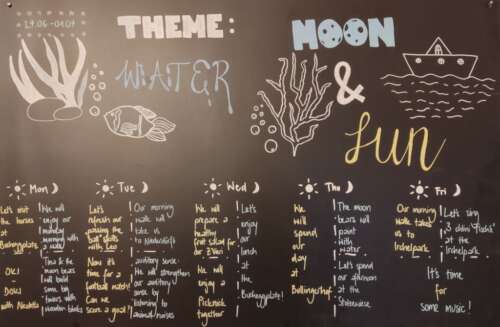 29.06 - 04.07
THEME: MOON
WATER &
SUN
Mon
Tue
Wed
Thu
Fri
Let's visit the horses at
OKJ
DOKU
with Nicoletta
We will enjoy our monday morning with a walk
This & the moon bears will build some big towers with wooden blocks
Let's refresh our passing the ball skills with Leo
Now it's time for a football match! Can we score a goal?
Our morning walk will take us to
auditory sense:
We will strengthen our auditory sense by listening to animal noises
We will prepare a healthy fruit salad for our Z'Vieri
We will enjoy a Picknick together
Let's enjoy our lunch at the Bucheggplatz!
We will spend our day at Bullingerhof
The moon bears will paint with water
Let's spend our afternoon at the
Our morning walk takes us to Irchelpark
Let's sing
at the Irchelpark
It's time for some music!